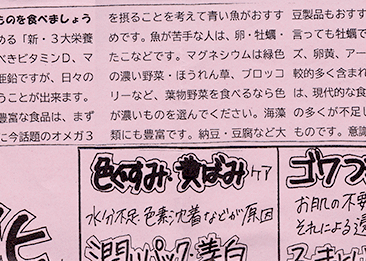 ものを食べましょう
める「新・3大栄養
べきビタミンD、マ
亜鉛ですが、日々の
ことが出来ます。
豊富な食品は、まず
に今話題のオメガ3
を摂ることを考えて青い魚がおすす
めです。魚が苦手な人は、卵・牡蠣・
たこなどです。マグネシウムは緑色
の濃い野菜・ほうれん草、ブロッコ
リーなど、葉物野菜を食べるなら色
が濃いものを選んでください。海藻
類にも豊富です。納豆・豆腐など大
豆製品もおすす
言っても牡蠣で
ズ、卵黄、アー
較的多く含まれ
は、現代的な食
の多くが不足し
ものです。意識
色くすみ・黄ばみケア
水分不足、色素沈着などが原因
潤いパック・美白
ゴワつ
お肌の不要
それによる